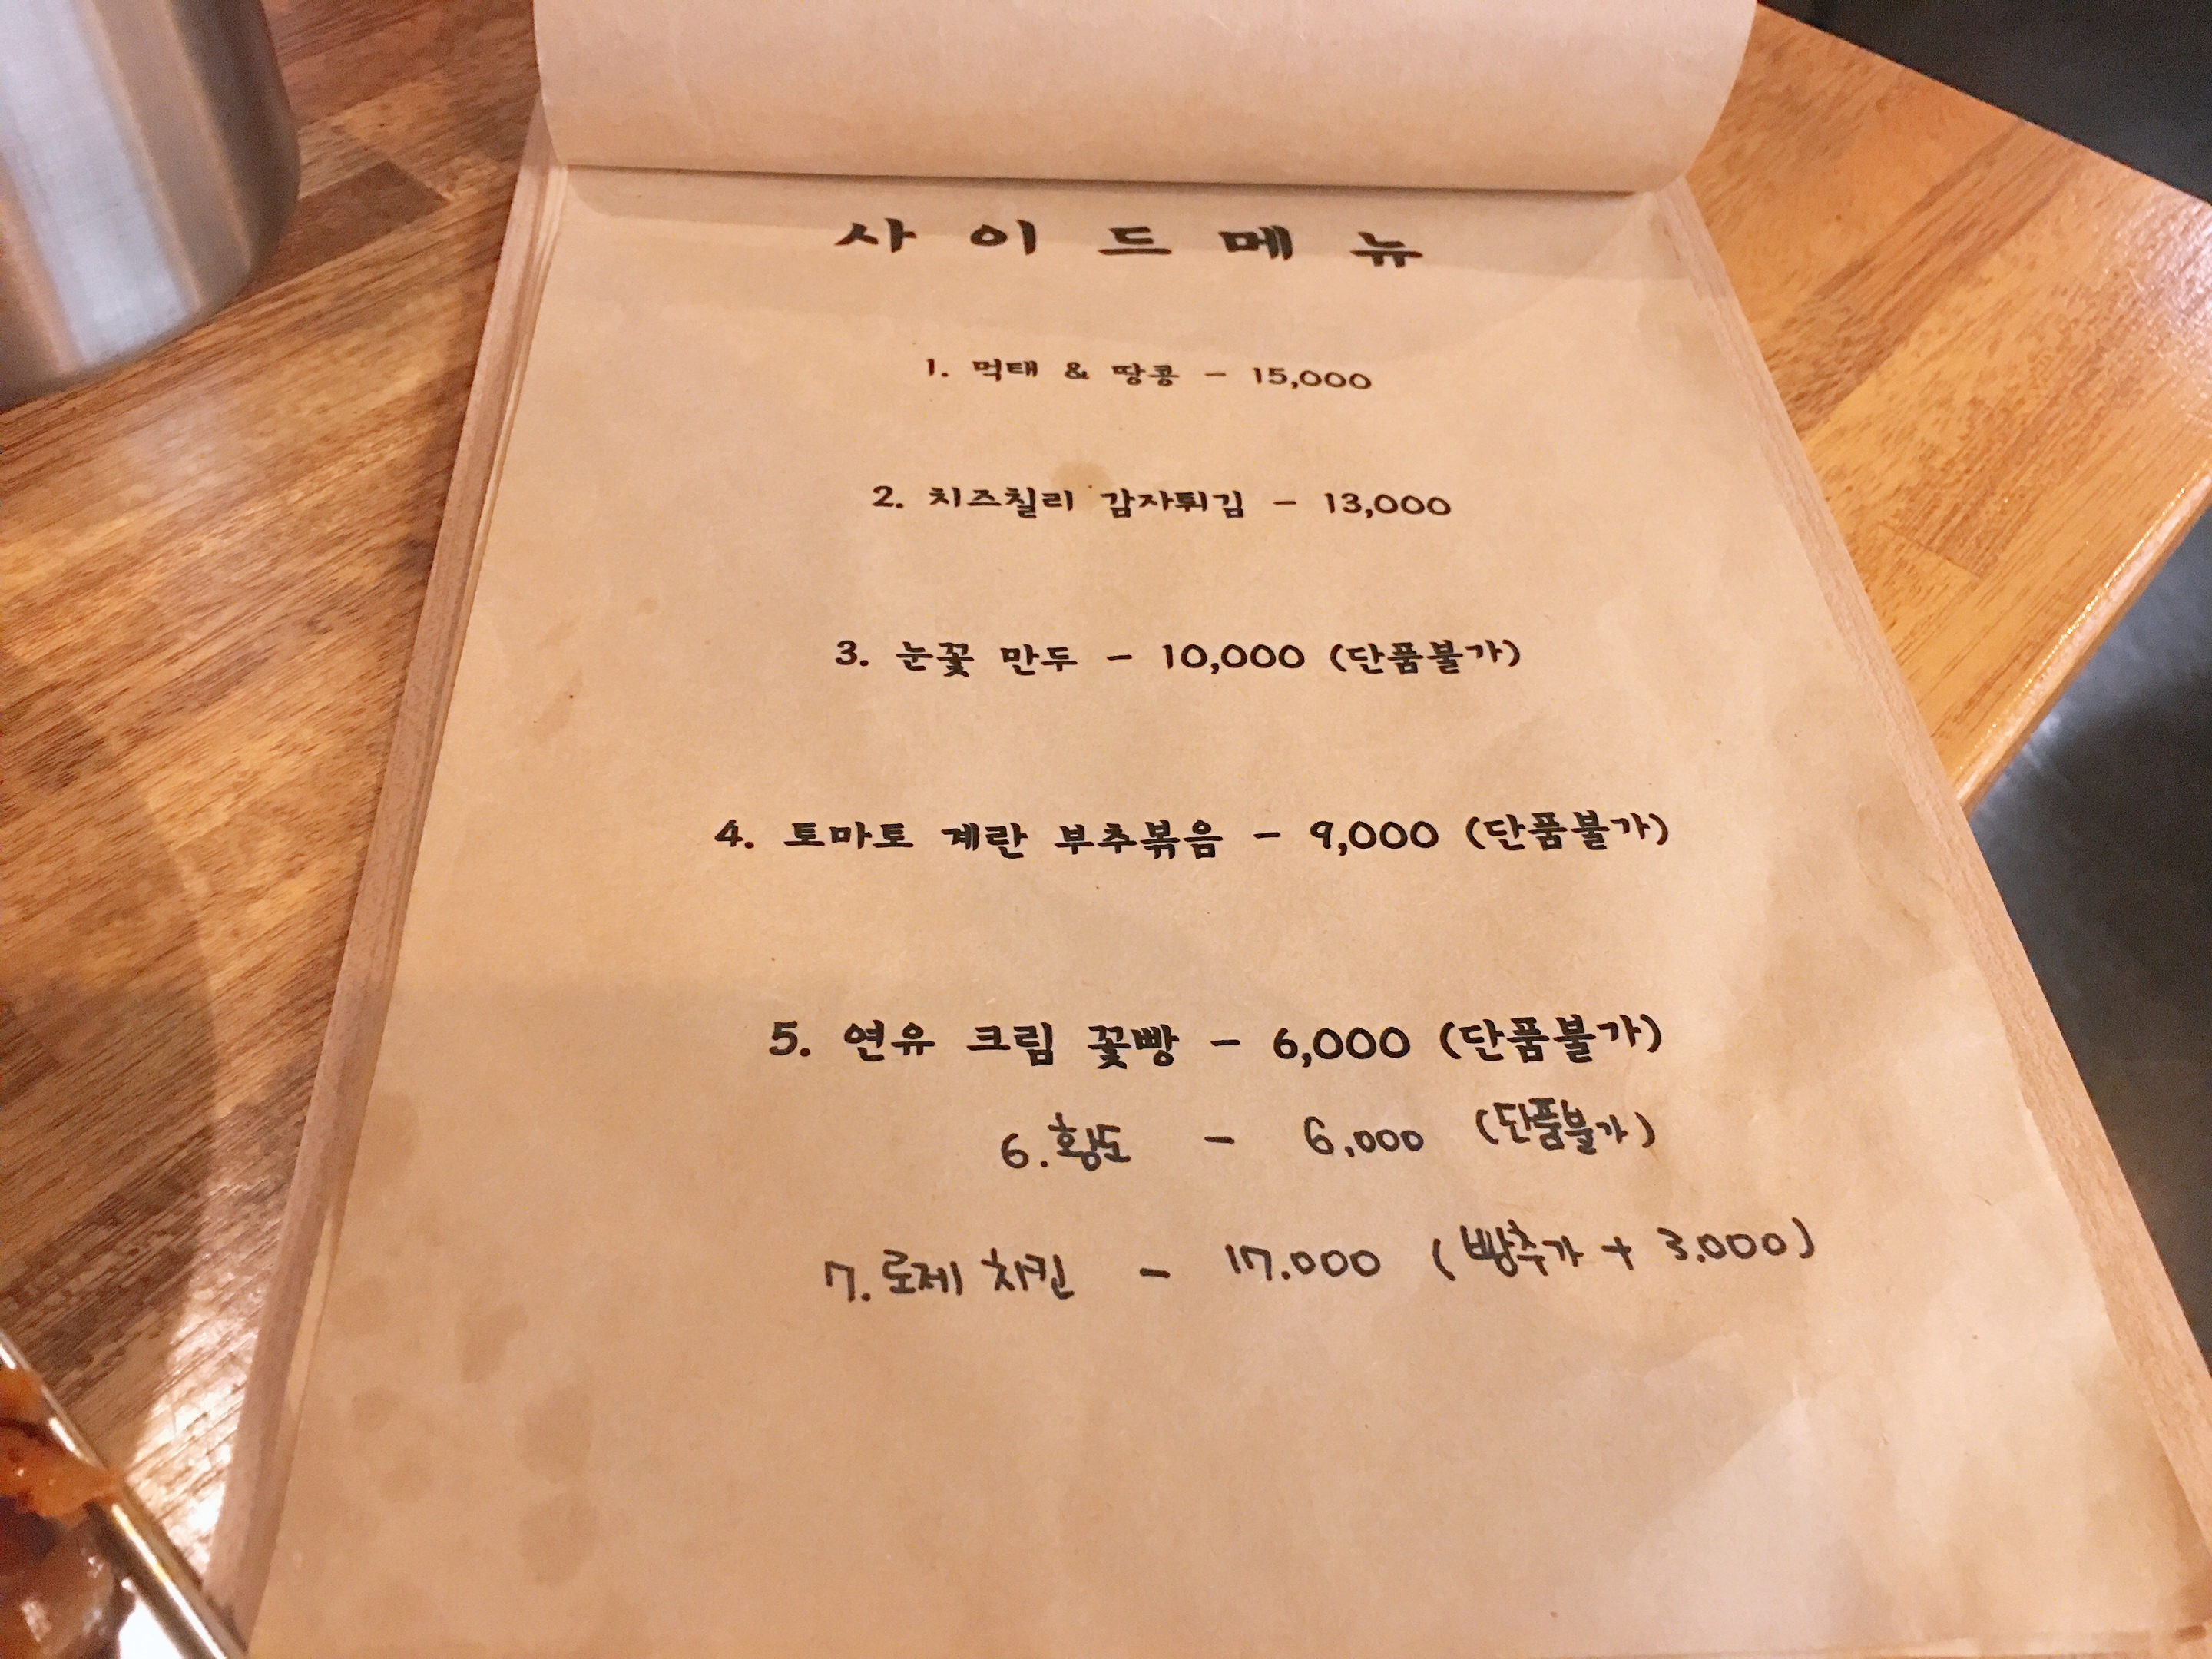 사이드메뉴
1. 먹태 & 땅콩 - 15,000
2. 치즈칠리 감자튀김 - 13,000
3. 눈꽃 만두 - 10,000 (단품불가)
4. 토마토 계란 부추볶음 - 9,000 (단품불가)
5. 연유 크림 꽃빵 - 6,000 (단품불가)
6. 황도 - 6,000 (단품불가)
7. 로제 치킨 - 17.000 (빵추가 + 3.000)